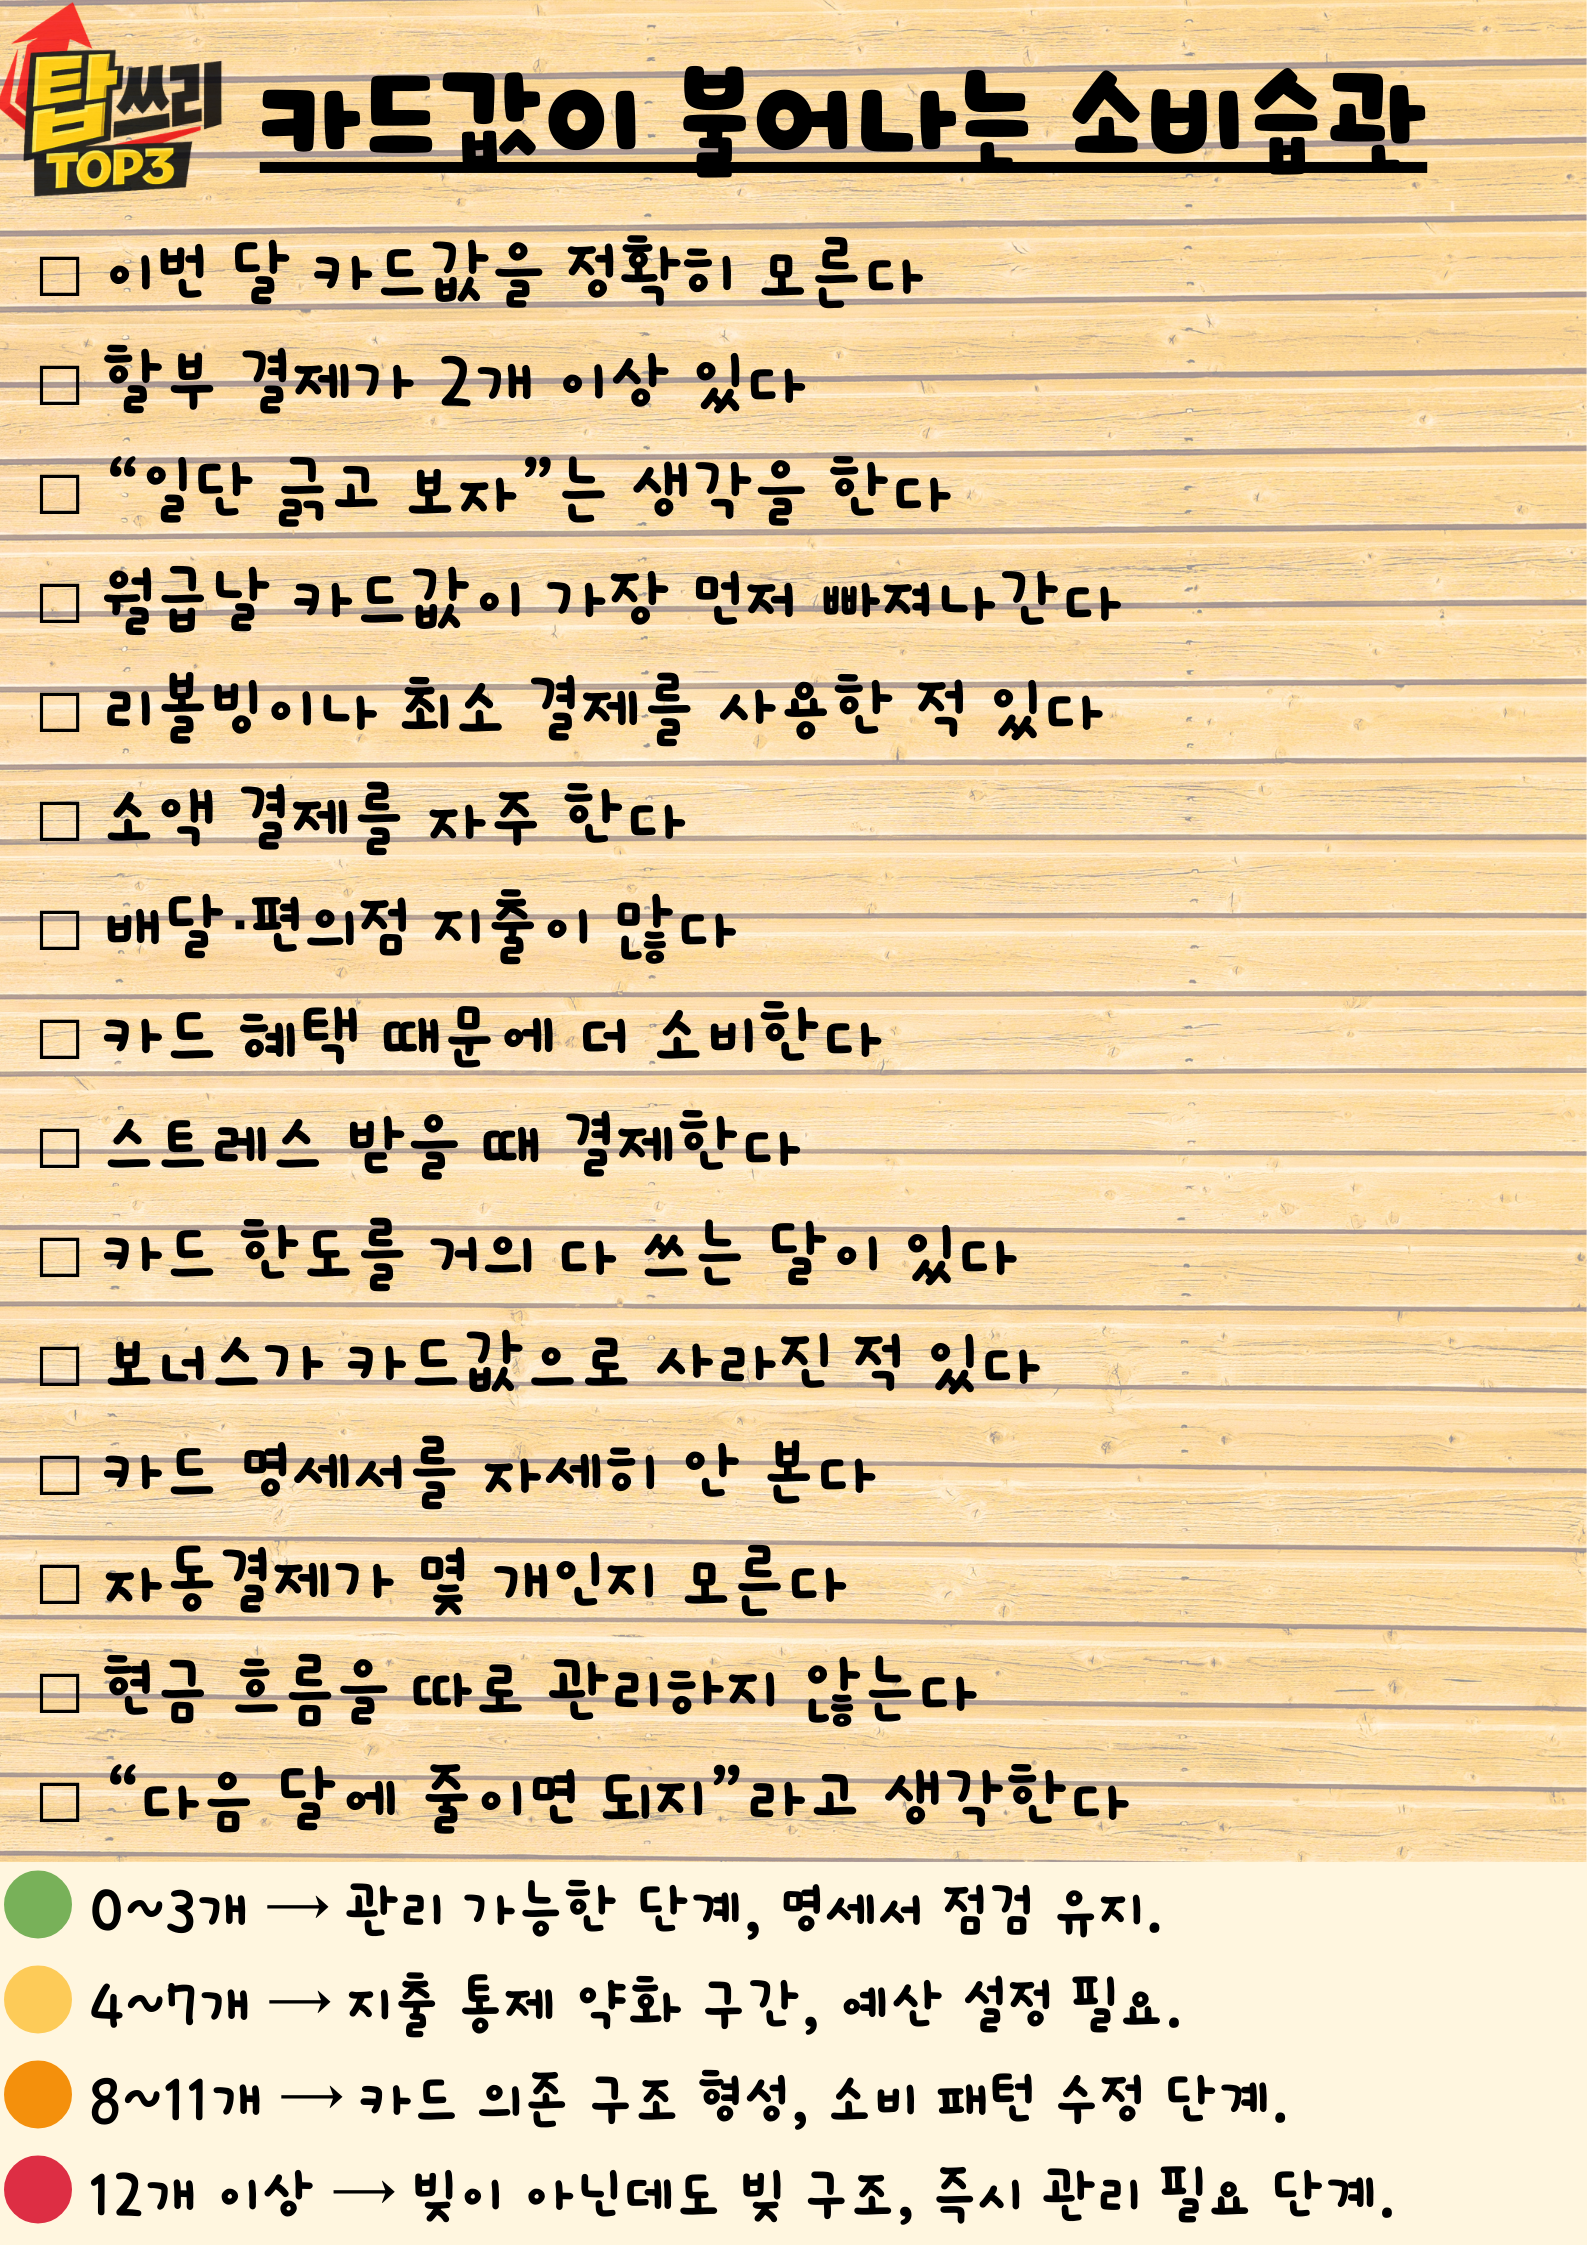 탑쓰리
TOP3
카드값이 불어나는 소비습관
□ 이번 달 카드값을 정확히 모른다
□ 할부 결제가 2개 이상 있다
□ “일단 긁고 보자”는 생각을 한다
□ 월급날 카드값이 가장 먼저 빠져나간다
□ 리볼빙이나 최소 결제를 사용한 적 있다
□ 소액 결제를 자주 한다
□ 배달·편의점 지출이 많다
□ 카드 혜택 때문에 더 소비한다
□ 스트레스 받을 때 결제한다
□ 카드 한도를 거의 다 쓰는 달이 있다
□ 보너스가 카드값으로 사라진 적 있다
□ 카드 명세서를 자세히 안 본다
□ 자동결제가 몇 개인지 모른다
□ 현금 흐름을 따로 관리하지 않는다
□ “다음 달에 줄이면 되지”라고 생각한다
0~3개 → 관리 가능한 단계, 명세서 점검 유지.
4~7개 → 지출 통제 약화 구간, 예산 설정 필요.
8~11개 → 카드 의존 구조 형성, 소비 패턴 수정 단계.
12개 이상 → 빚이 아닌데도 빚 구조, 즉시 관리 필요 단계.